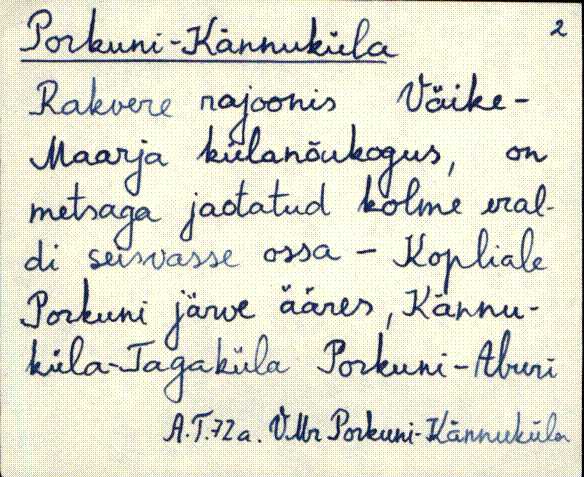 Porkuni-Kännuküla 2
Rakvere rajoonis Väike-
Maarja külanõukogus, on
metsaga jaotatud kolme eral-
di seisvasse ossa - Kopliale
Porkuni järve ääres, Kännu-
küla-Tagaküla Porkuni-Aburi
A.T.72a. V.Mr Porkuni-Kännuküla